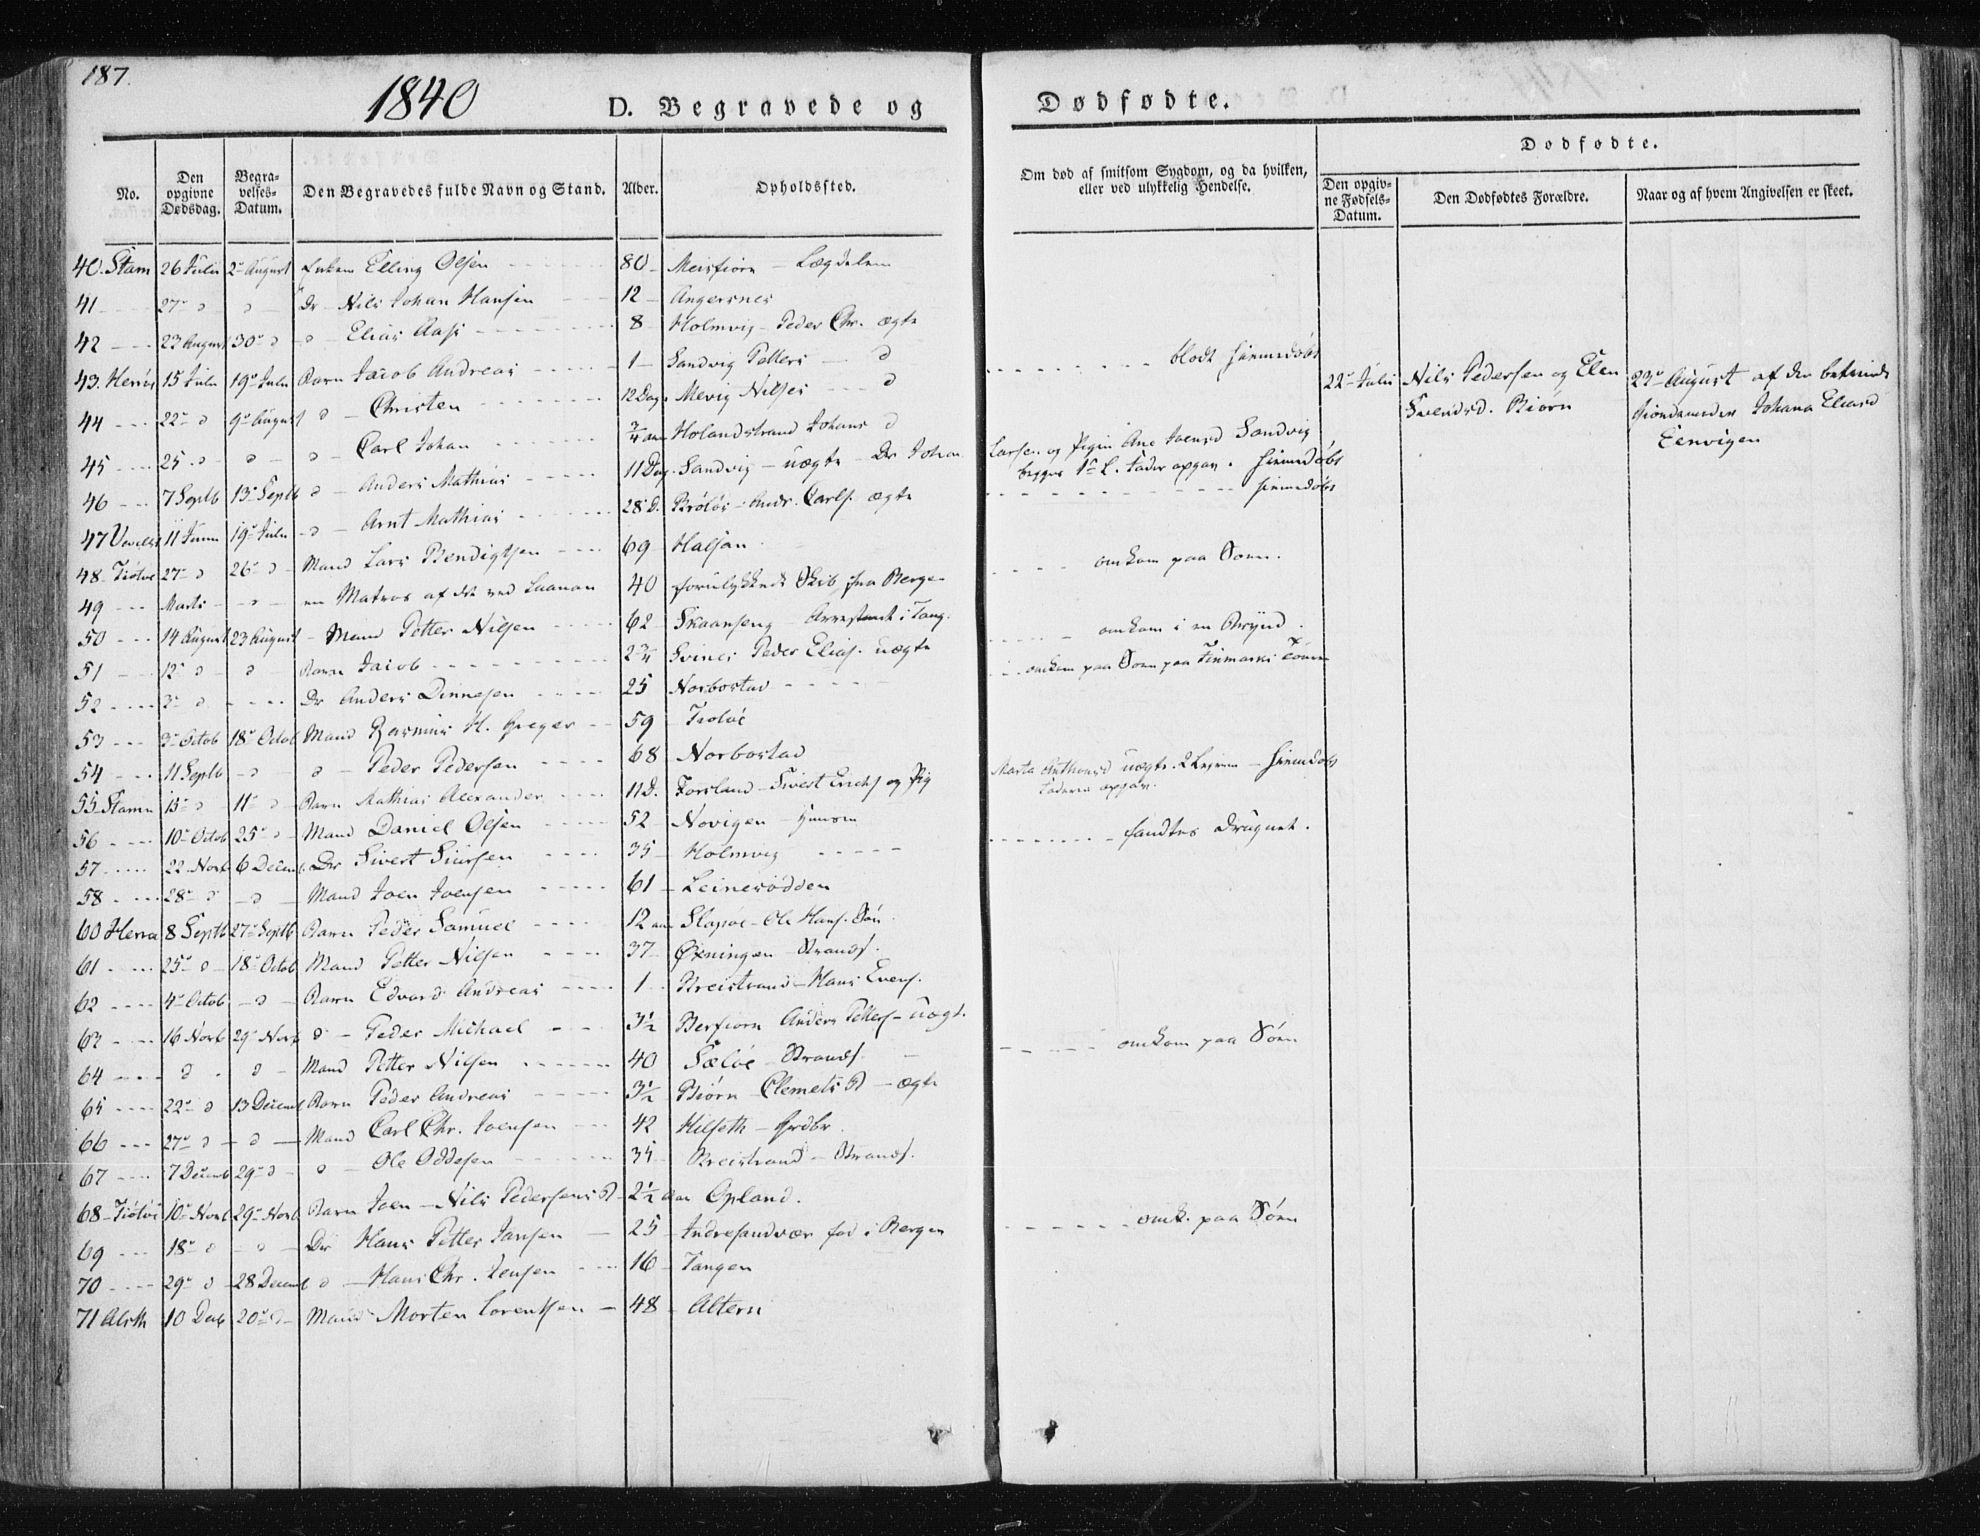 187.
1840
D. Begravede og
Dødfødte.
No.
Den opgivne Dødsdag.
Begravelses-Datum.
Den Begravedes fulde Navn og Stand.
Alder.
Opholdssted.
Om død af smitsom Sygdom, og da hvilken, eller ved ulykkelig Hendelse.
Dødfødte.
Den opgivne Fødsels-Datum.
Den Dødfødtes Forældre.
Naar og af hvem Angivelsen er skeet.
40. Stam 26 Julii 2 August Elling Olsen 80 Meisfiorn Lægdslem
41 27 d d Dr Nils Johan Hansen 12 Angersnes
42 23 August 30 d d Elias Aas 8 Holmvig Peder Chr. ægte
43. Herrøe 15 Julii 19 Julii Barn Jacob Andreas 1 Sandvig Petters d blodt hiemedøbt
44 22 d 9 August d Christen 12 Dage Mevig Nilses d
22 Julii Nils Pedersen og Elen Svendsd. Biørn
23 August af den
Johana Eliasd Eenvigen
45 25 d d d Carl Johan 3/4 aar Holandstrand Johans d
46 7 Septb 13 Septb d Anders Mathias 11 Dag. Sandvig uægte Dr Johan Larsen og Pigen Ane Joensd Sandvig
begges 1 L. Fader opgav. hiemedøbt
47 11 Junii 19 Julii d Arnt Mathias 28 D. Brøløs Andr. Carls. ægte hiemedøbt
48 Tiøtøe 27 d 26 d Mand Lars Bendigtsen 69 Halsan omkom paa Søen.
49 Marts d en Matros af det ved Laanan 40 forulykkede Skib fra Bergen
50 14 August 23 August Mand Petter Nilsen 62 Skaanseng Arrestant i Tang. omkom i en Brynd.
51 12 d d Barn Jacob 2 3/4 Svines Peder Elias. uægte
52 3 d Dr Anders Dinnesen 25 Norbostad omkom paa Søen paa Finmarks Touren
53 3 Octob 18 Octob Mand Rasmus H. Greger 59 Tiøtøe
54 11 Septb d d Peder Pedersen 68 Norbostad
55 Stamn 15 d 11 d Barn Mathias Alexander 11 D. Forsland Sivert Erichs og Pig Marta Anthonsd uægte 2 Leierm hiemdøbt
Faderen opgav.
56 10 Octob 25 d Mand Daniel Olsen 52 Novigen
57 22 Novb 6 Decemb. Dr Sivert Siursen 35 Holmvig fandtes drugnet.
58 28 d d Mand Joen Joensen 61 Leinesødden
60 Herrø 8 Septb 27 Septb Barn Peder Samuel 12 aar Slapøe Ole Hans. Søn
61 25 d 18 Octob Mand Petter Nilsen 37 Øxningen Strands.
62 4 Octob d Barn Edvard Andreas 1 Breistrand Hans Evens.
63 16 Novb 29 Novb d Peder Michael 3 1/2 Berfiorn Anders Petters uægt.
64 d d Mand Petter Nilsen 40 Sæløe Strands. omkom paa Søen
65 22 d 13 Decemb Barn Peder Andreas 3 1/2 Biørn Clemets B ægte
66 27 d d Mand Carl Chr. Joensen 42 Hilseth Grdbr.
67 7 Decemb 29 d d Ole Oddesen 35 Breistrand Strands.
68 Tiøtøe 10 Novb 29 Novb Barn Joen Nils Pedersens B 2 1/2 aar Opland.
69 18 d d Dr Hans Petter Jansen 25 Indresandvær fød i Bergen omk. paa Søen
70 29 d 28 Decemb d Hans Chr. Jensen 16 Tangen
71 Alsth 10 Decb 20 d Mand Morten Lorentsen 48 Altern